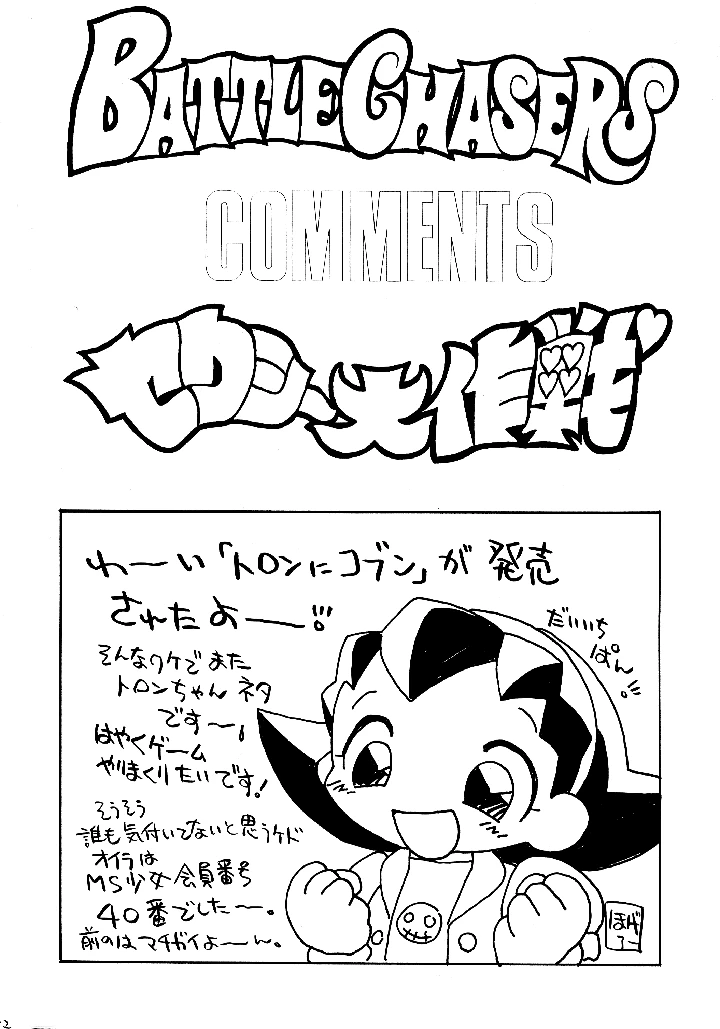 BATTLE CHASERS
COMMENTS
セクシー大作戦
わーい「トロンにコブン」が発売
されたよー!!!
だいいち
ぱん!!!
そんなワケでまた
トロンちゃんネタ
です〜!
はやくゲーム
やりまくりたいです!
そうそう
誰も気付いてないと思うケド
オイラは
MS少女会員番号
40番でした〜。
前のはマチガイよーん。
ほげ
ろー